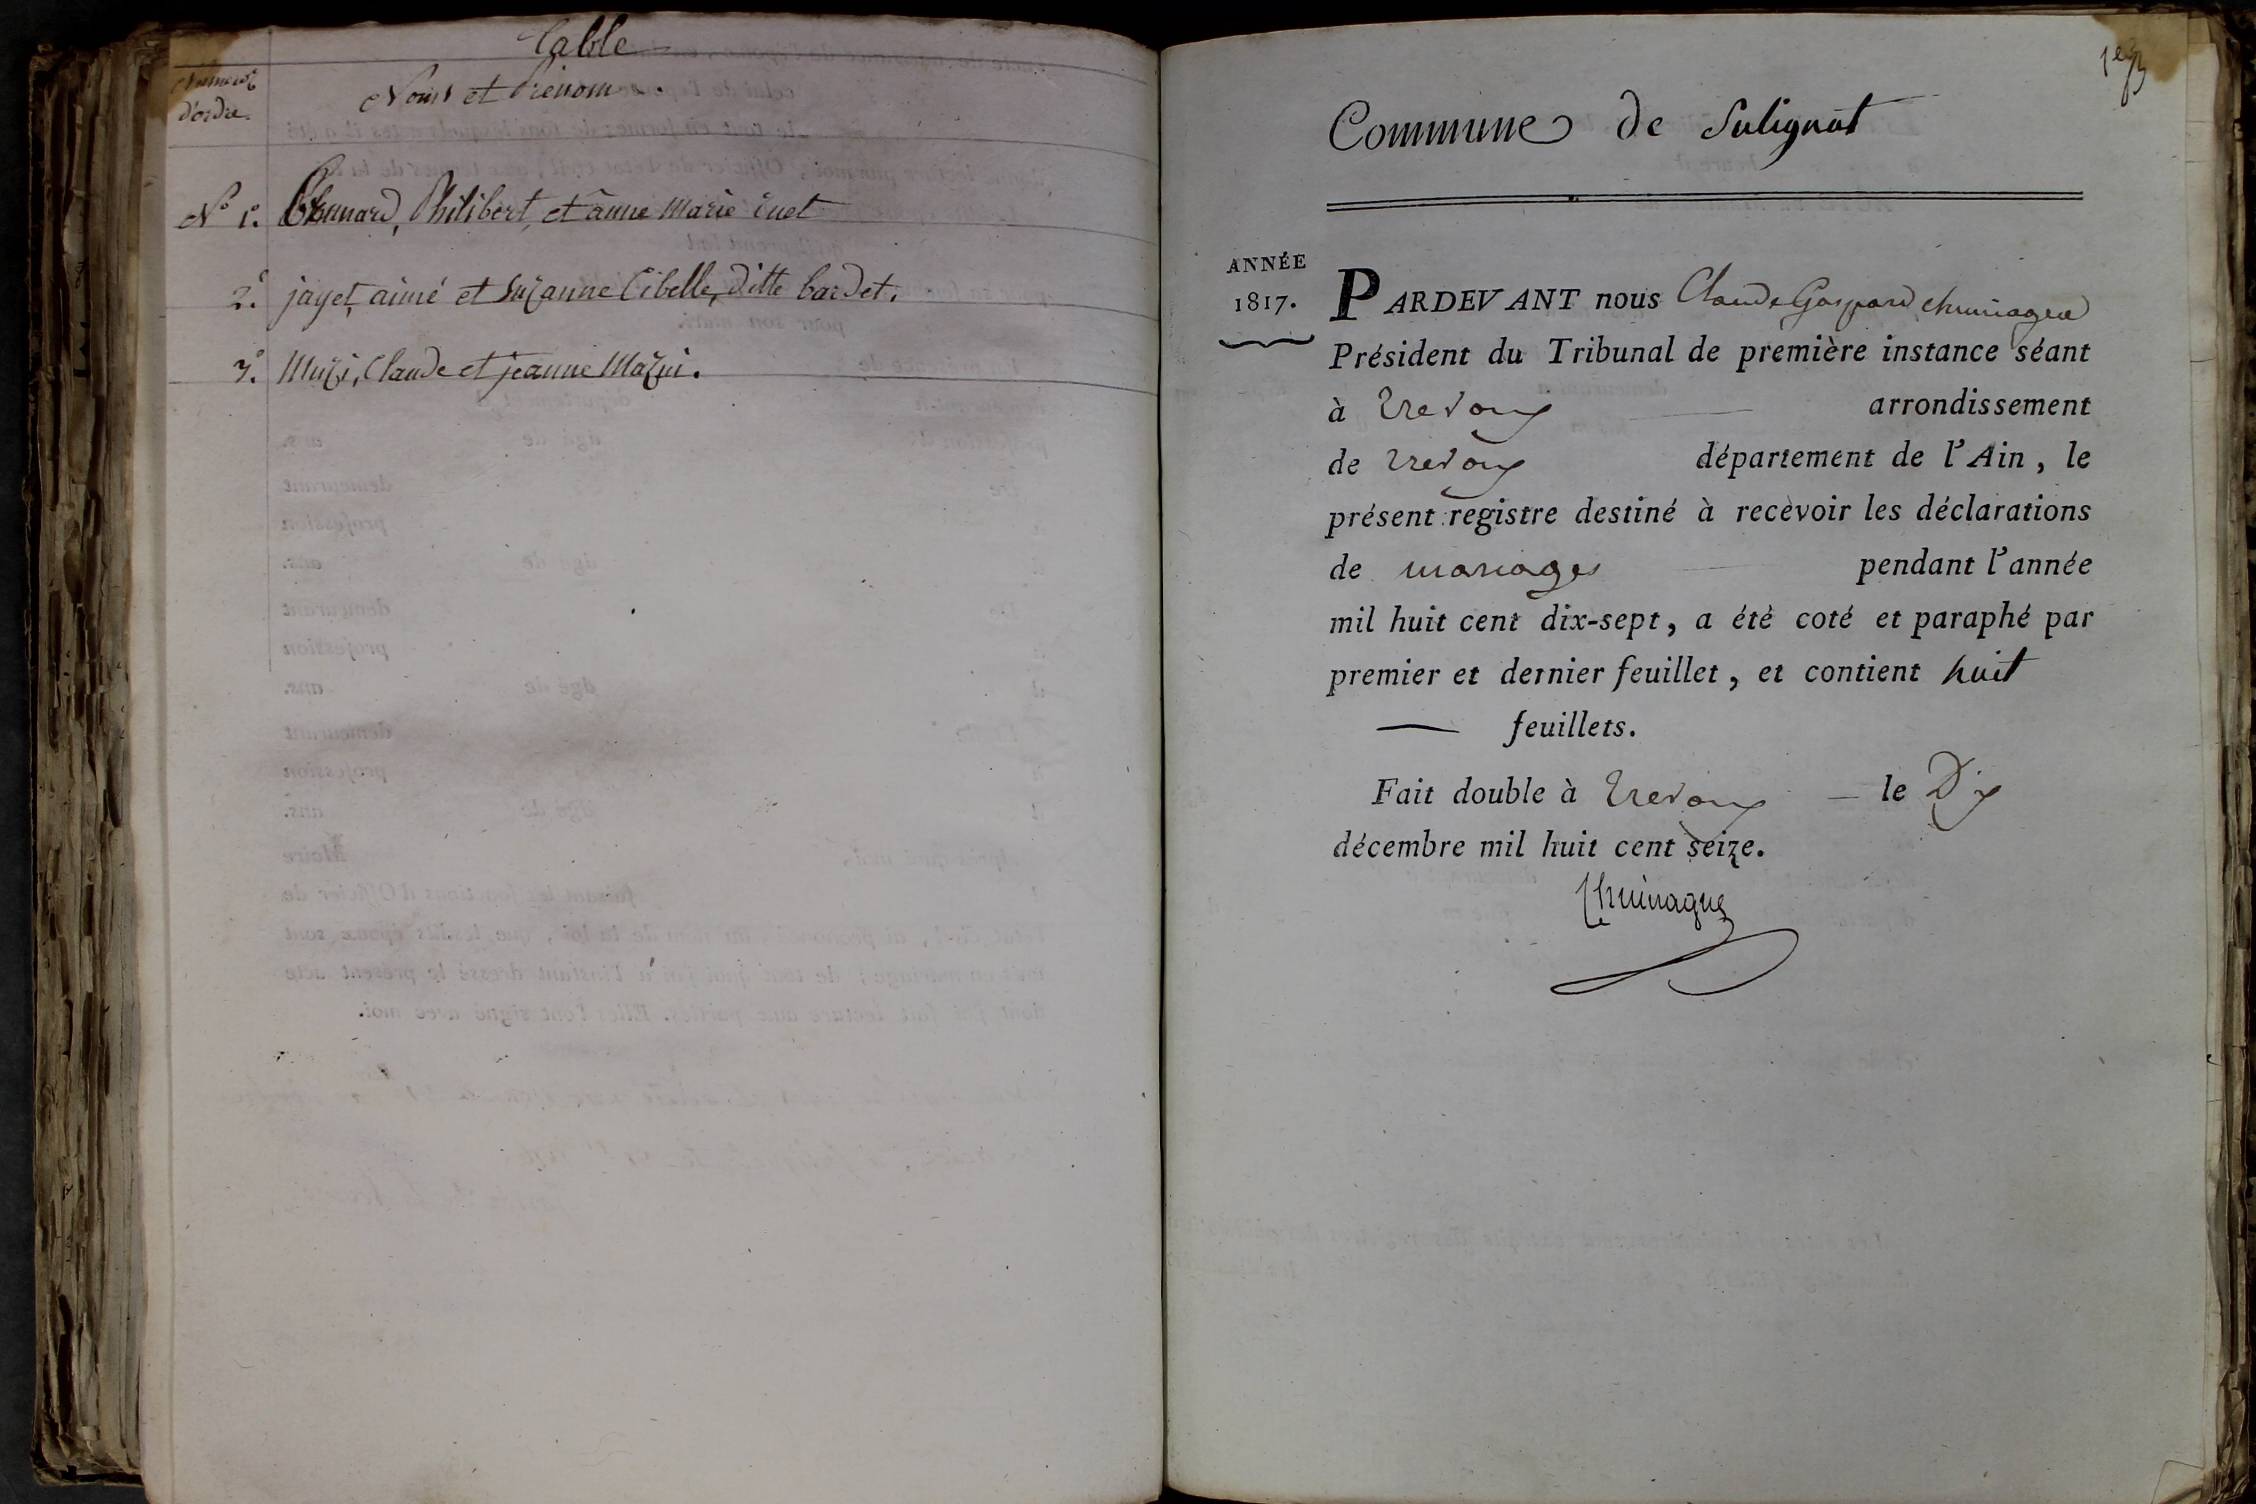 Table
Numero
d'ordre.
Noms et Prénom.
N° 1°. Chanard, Philibert, et anne Marie
2°. jayet, aimé et Suzanne Cibelle, ditte bardet.
3°. Muzi, Claude et jeanne Mazui.
1er
Commune de Sulignat
ANNÉE
1817.
PARDEVANT nous Claude Gaspard Chuinague
Président du Tribunal de première instance séant
à Trevoux arrondissement
de Trevoux département de l'Ain, le
présent registre destiné à recevoir les déclarations
de mariages pendant l'année
mil huit cent dix-sept, a été coté et paraphé par
premier et dernier feuillet, et contient huit
— feuillets.
Fait double à Trevoux — le Dix
décembre mil huit cent seize.
Chuinague